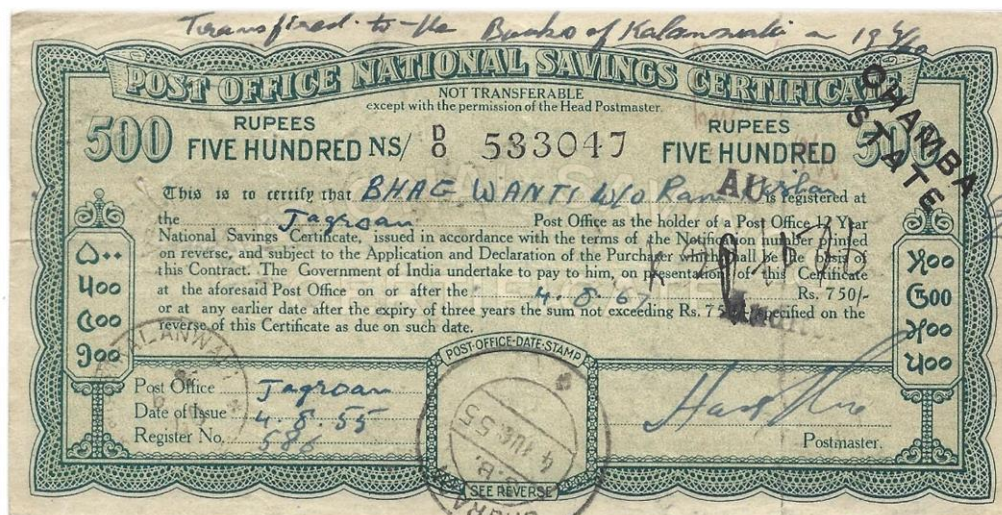 Transfired to the Banks of Kalanwali on 19
POST OFFICE NATIONAL SAVINGS CERTIFICATE
CHAMBA STATE
NOT TRANSFERABLE
except with the permission of the Head Postmaster.
500 RUPEES FIVE HUNDRED NS/ D/O 533047 RUPEES FIVE HUNDRED 500
This is to certify that BHAGWANTI W/O Ram Kishan is registered at
the Jagroan Post Office as the holder of a Post Office 12 Year
National Savings Certificate, issued in accordance with the terms of the Notification number printed
on reverse, and subject to the Application and Declaration of the Purchaser which shall be the basis of
this Contract. The Government of India undertake to pay to him, on presentation of this Certificate
at the aforesaid Post Office on or after the 4.8.67 Rs. 750/-
or at any earlier date after the expiry of three years the sum not exceeding Rs. 750/- specified on the
reverse of this Certificate as due on such date.
৫০০
५००
૫૦૦
POST-OFFICE-DATE-STAMP
ALANWAL
Post Office Jagroan
Date of Issue 4.8.55
Register No. 586
4 AUG 55
S.B.
Postmaster.
SEE REVERSE